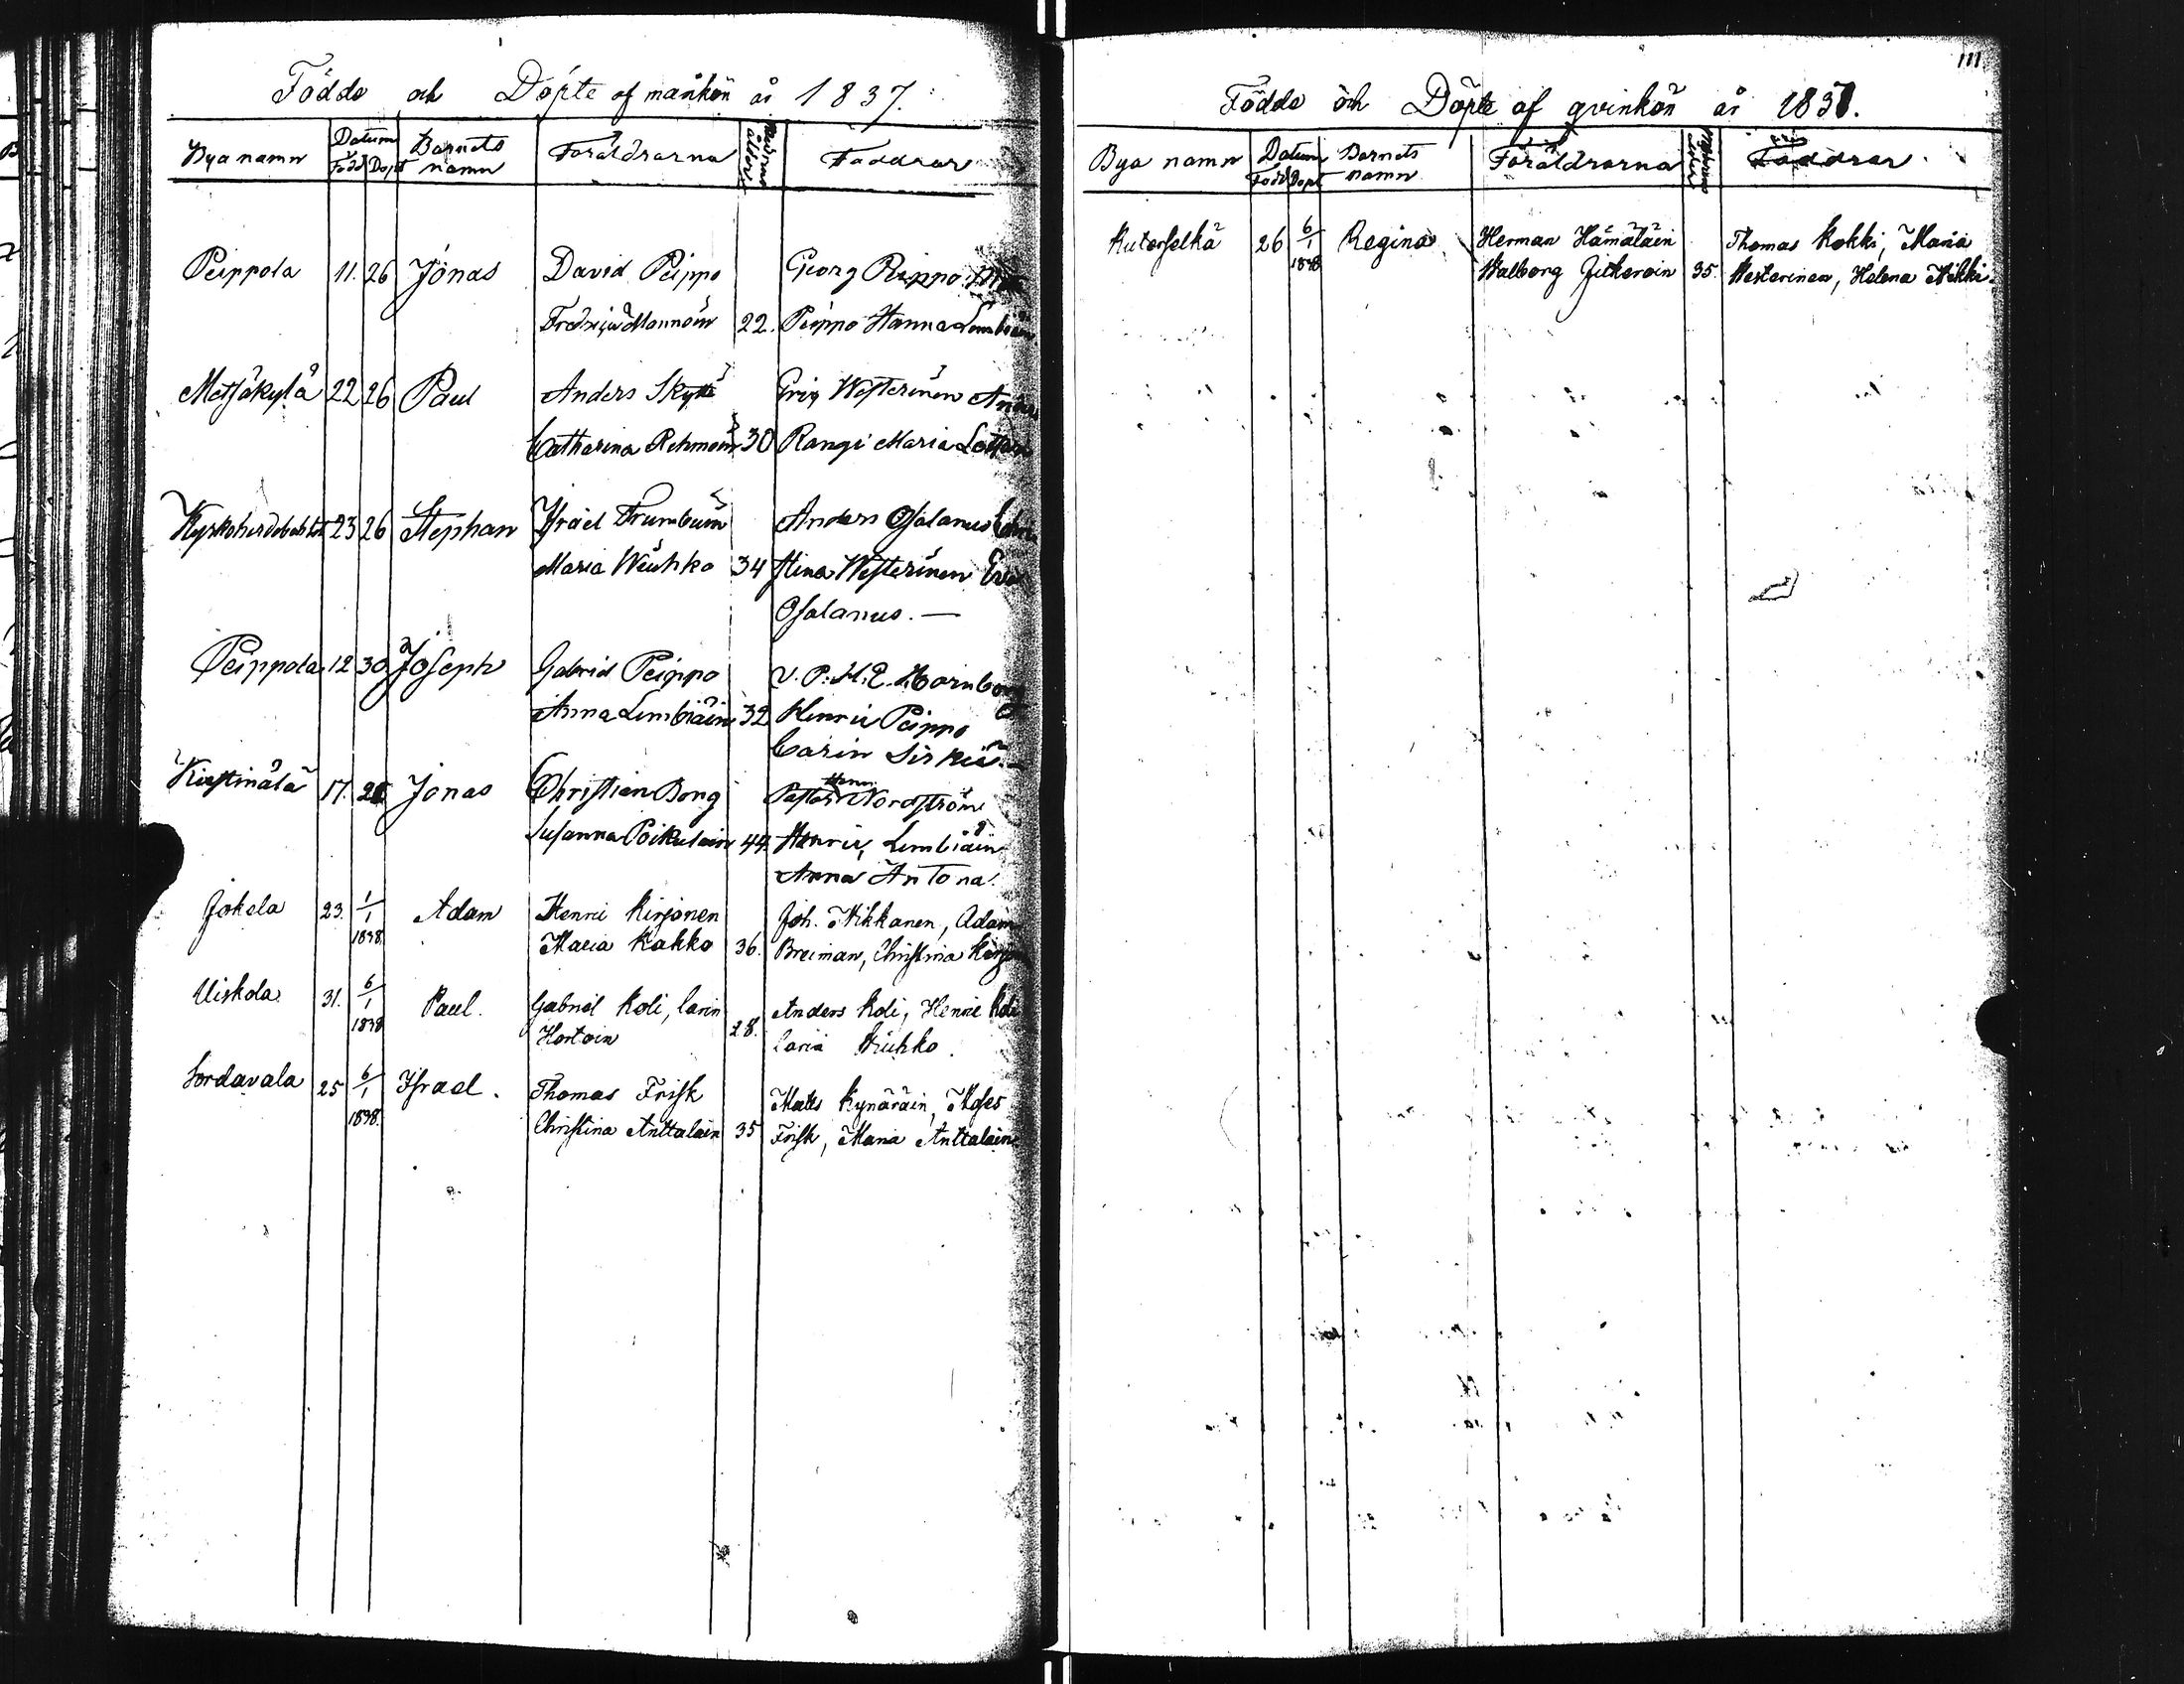 Födde och Döpte af mankön år 1837.
Bya namn Datum Född Döpt Barnets namn Föräldrarna Modrens ålder Faddrar
Peippola 11. 26 Jonas David Peippo Georg Peippo
22. Peippo Hanna Lembiäin
Metsäkylä 22 26 Paul Anders Skyttä Eriq Westerinen Anders
Catharina Rehmoin 30 Rangi Maria
23 26 Stephan Israel Frumbuin Anders Osalanus
Maria Weuhko 34 Stina Westerinen
Osalanus. —
Peippola 12 30 Joseph Gabriel Peippo V. P. H. E. Hornborg
Anna Lembiäin 32 Henric Peippo
Carin Sirkiä. —
Kirstinälä 17. 26 Jonas Christian Borg Pastor Nordström
Susanna Poikulain 44. Henric Lembiäin
Anna Antona.
Jokela 23. 1/1 1838. Adam Henric Kirjonen Joh. Nikkanen, Adam
Maria Kakko 36. Breiman, Christina
Uiskola 31. 6/1 1838 Paul. Gabriel Koli, Carin Anders Koli, Henric Koli
Hortoin 28. Carin
Sordavala 25 6/1 1838. Israel. Thomas Frisk Matts Kynäräin, Moses
Christina Anttalain 35 Frisk, Maria Anttalain
111.
Födde och Döpte af qvinkön år 1837.
Bya namn Datum Född Döpt Barnets namn Föräldrarna Modrens ålder Faddrar
Kuterselkä 26 6/1 1838 Regina Herman Hämäläin Thomas Kokki, Maria
Walborg 35. Westerinen, Helena Nikki.